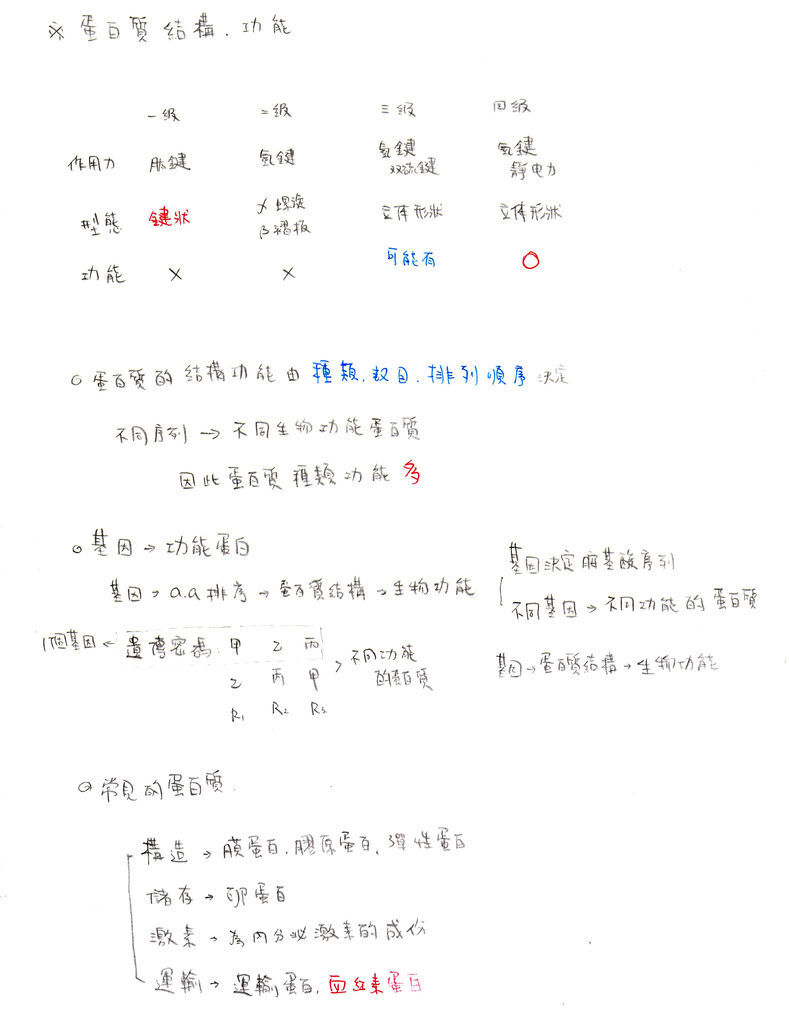 ※ 蛋白質結構、功能
一級 二級 三級 四級
作用力 肽鍵 氫鍵 氫鍵 双硫鍵 氫鍵 靜电力
型態 鍵狀 α螺旋 β褶板 立体形狀 立体形狀
功能 × × 可能有 ○
○ 蛋白質的結構功能由種類、数目、排列順序決定
不同序列 → 不同生物功能蛋白質
因此蛋白質種類功能多
○ 基因 → 功能蛋白
基因 → a.a排序 → 蛋白質結構 → 生物功能
1個基因 ← 遺傳密碼: 甲 乙 丙
乙 丙 甲
R₁ R₂ R₃
> 不同功能
的蛋白質
基因決定胺基酸序列
不同基因 → 不同功能的蛋白質
基因 → 蛋白質結構 → 生物功能
○ 常見的蛋白質
構造 → 膜蛋白、膠原蛋白、彈性蛋白
儲存 → 卵蛋白
激素 → 為內分泌激素的成份
運輸 → 運輸蛋白、血红素蛋白